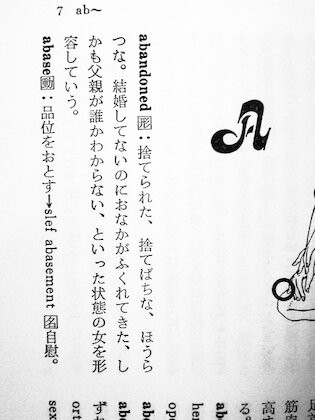 7 ab〜
A
abandoned 形：捨てられた、捨てばちな、ほうら
つな。結婚してないのにおなかがふくれてきた、し
かも父親が誰かわからない、といった状態の女を形
容していう。
abase 動：品位をおとす→slef abasement 名自慰。
筋肉
高す
る。
ab
ope
her
ab
ab
ort
sex